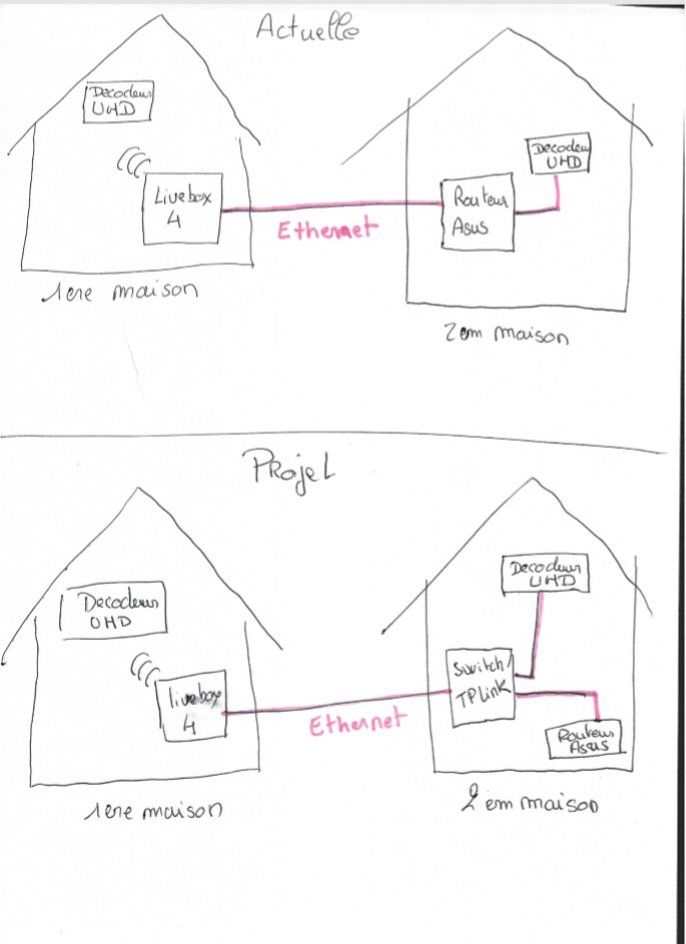 Actuelle
Decodeur
UHD
Livebox
4
Ethernet
Routeur
Asus
Decodeur
UHD
1ere maison
2em maison
Projet
Decodeur
UHD
livebox
4
Ethernet
Switch/
TPLink
Decodeur
UHD
Routeur
Asus
1ere maison
2em maison